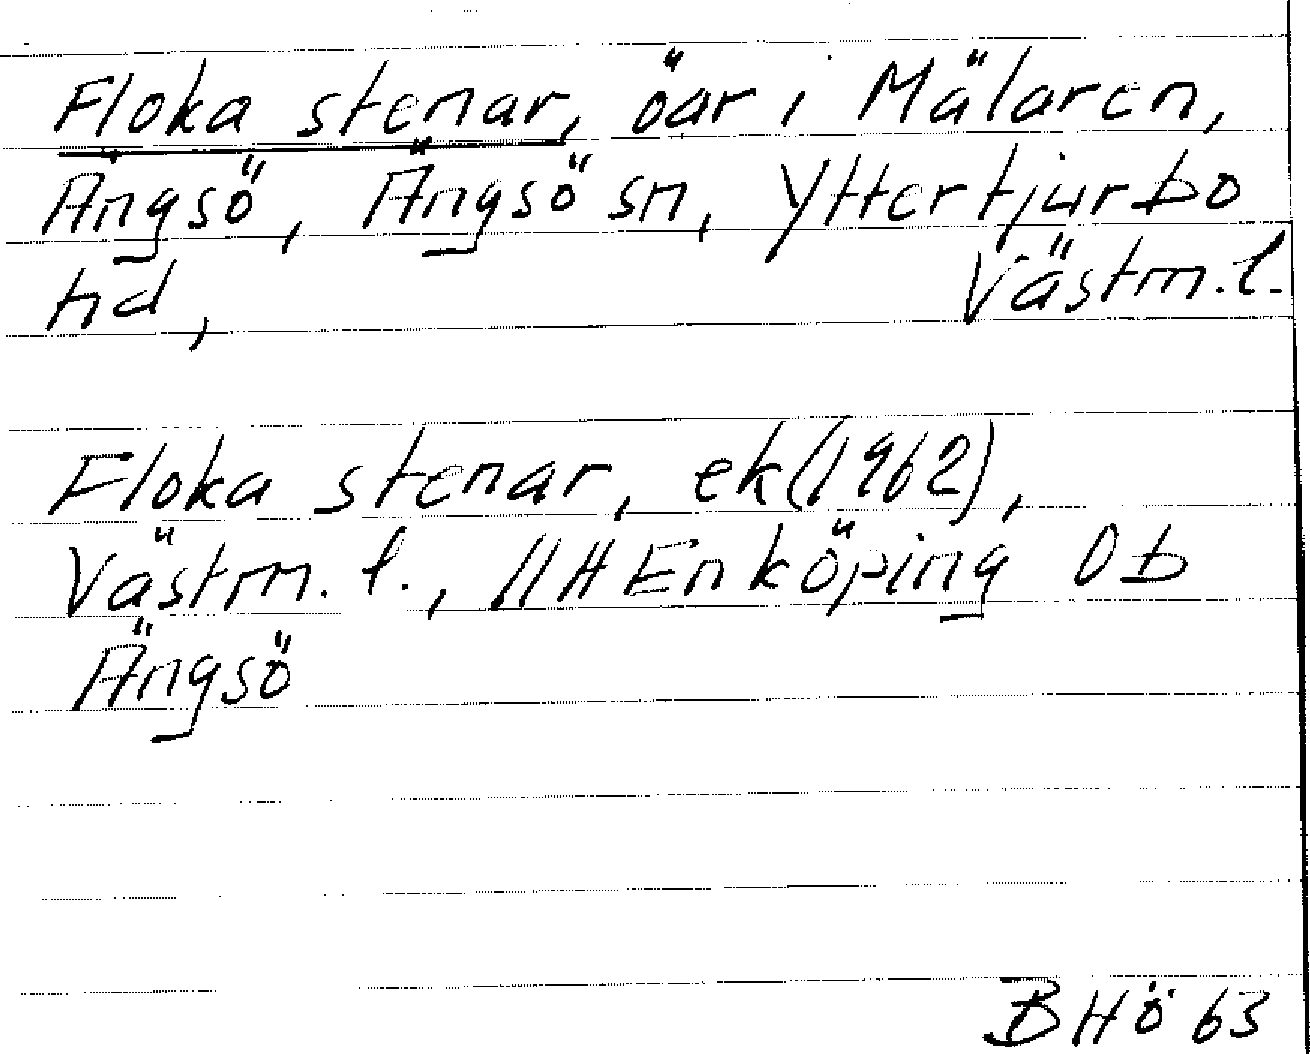 Floka stenar, öar i Mälaren,
Ängsö, Ängsö sn, Yttertjurbo
hd, Västm. l.
Floka stenar, ek (1962),
Västm. l., 11H Enköping 0b
Ängsö
BHö 63